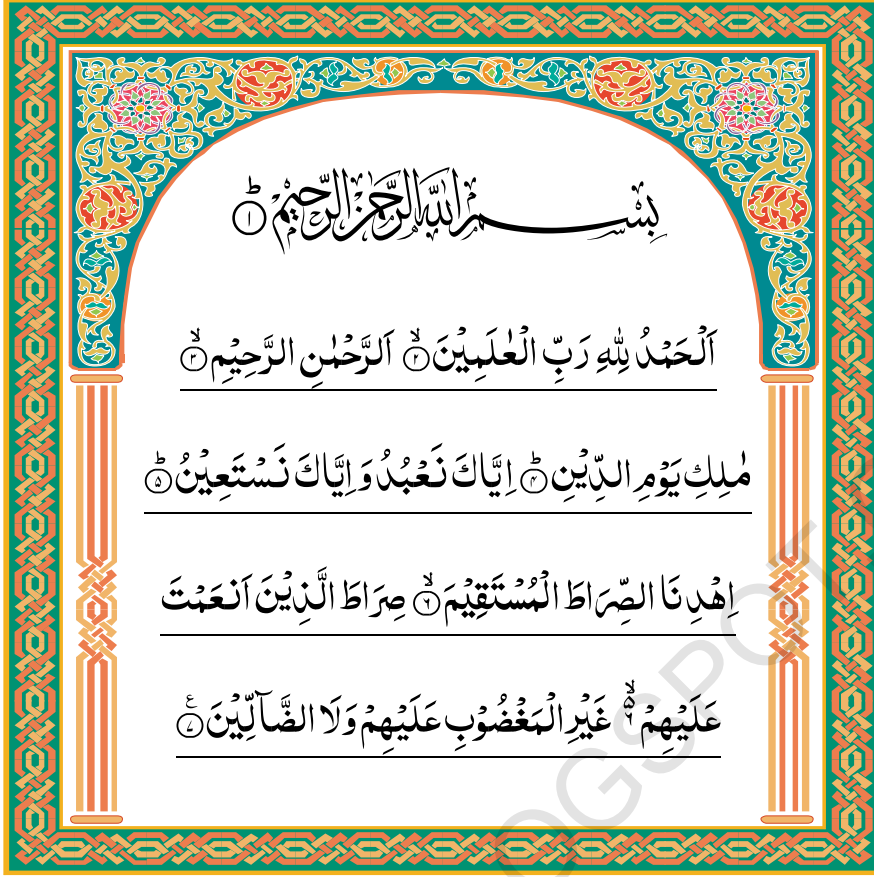 بِسْمِ اللّٰهِ الرَّحْمٰنِ الرَّحِيْمِ ؕ ۝۱
اَلْحَمْدُ لِلّٰهِ رَبِّ الْعٰلَمِيْنَ ۙ ۝۲ اَلرَّحْمٰنِ الرَّحِيْمِ ۙ ۝۳
مٰلِكِ يَوْمِ الدِّيْنِ ؕ ۝۴ اِيَّاكَ نَعْبُدُ وَاِيَّاكَ نَسْتَعِيْنُ ؕ ۝۵
اِهْدِنَا الصِّرَاطَ الْمُسْتَقِيْمَ ۙ ۝۶ صِرَاطَ الَّذِيْنَ اَنْعَمْتَ
عَلَيْهِمْ ۙ۬ۦ غَيْرِ الْمَغْضُوْبِ عَلَيْهِمْ وَلَا الضَّآلِّيْنَ ࣖ ۝۷
OGSPOT